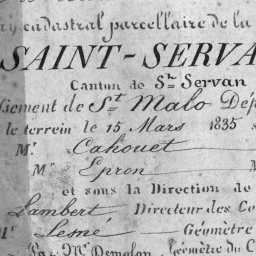 cadastral parcellaire de la
SAINT-SERVA
Canton de Sn Servan
de St Malo Dép
le terrein le 15 Mars 1835
Mr Cahouet
Mr Epron
et sous la Direction de
Lambert Directeur des Co
Mr Lesné Géomètre
Mr Demolon, Géomètre du C